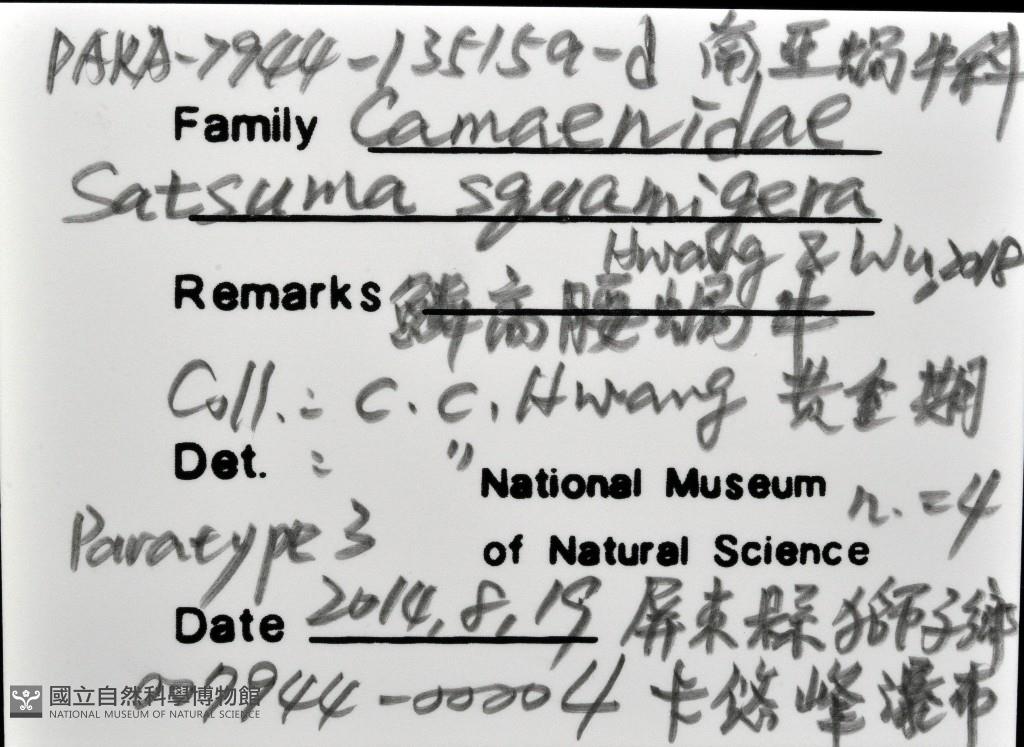 PAKA-7944-135159-d 南亚蝸牛科
Family Camaenidae
Satsuma squamigera
Hwang & Wu, 2018
Remarks 鱗高腰蝸牛
Coll.: C. C. Hwang 黃重期
Det. : 〃
National Museum of Natural Science
n. = 4
Paratype 3
Date 2014, 8, 19 屏東縣獅子鄉
007944-00004 卡悠峰瀑布
國立自然科學博物館
NATIONAL MUSEUM OF NATURAL SCIENCE